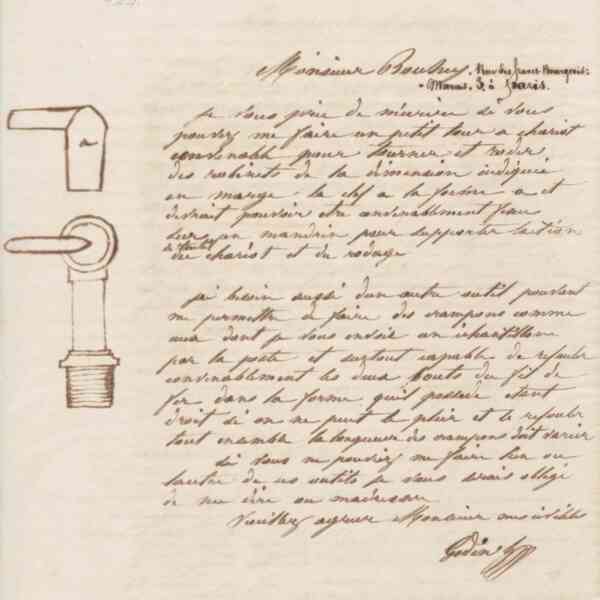 Monsieur Bouhey, Rue des francs-Bourgeois-
Marais. 3. à Paris.
je vous prie de m'écrire si vous
pouvez me faire un petit tour a chariot
convenable pour tourner et roder
des robinets de la dimension indiquée
en marge la clef a la forme a et
devrait pouvoir etre convenablement fixée
sur un mandrin pour supporter l'action
de l'outil
du chariot et du rodage
j'ai besoin aussi d'un autre outil pouvant
me permettre de faire des crampons comme
ceux dont je vous envoie un échantillon
par la poste et surtout capable de refouler
convenablement les deux bouts du fil de
fer dans la forme qu'il possède etant
droit si on ne peut le plier et le refouler
tout ensemble la longueur des crampons doit varier
si vous ne pouviez me faire l'un ou
l'autre de ces outils je vous serais obligé
de me dire ou m'adresser
Veuillez agréer Monsieur mes civilités
Godin
a